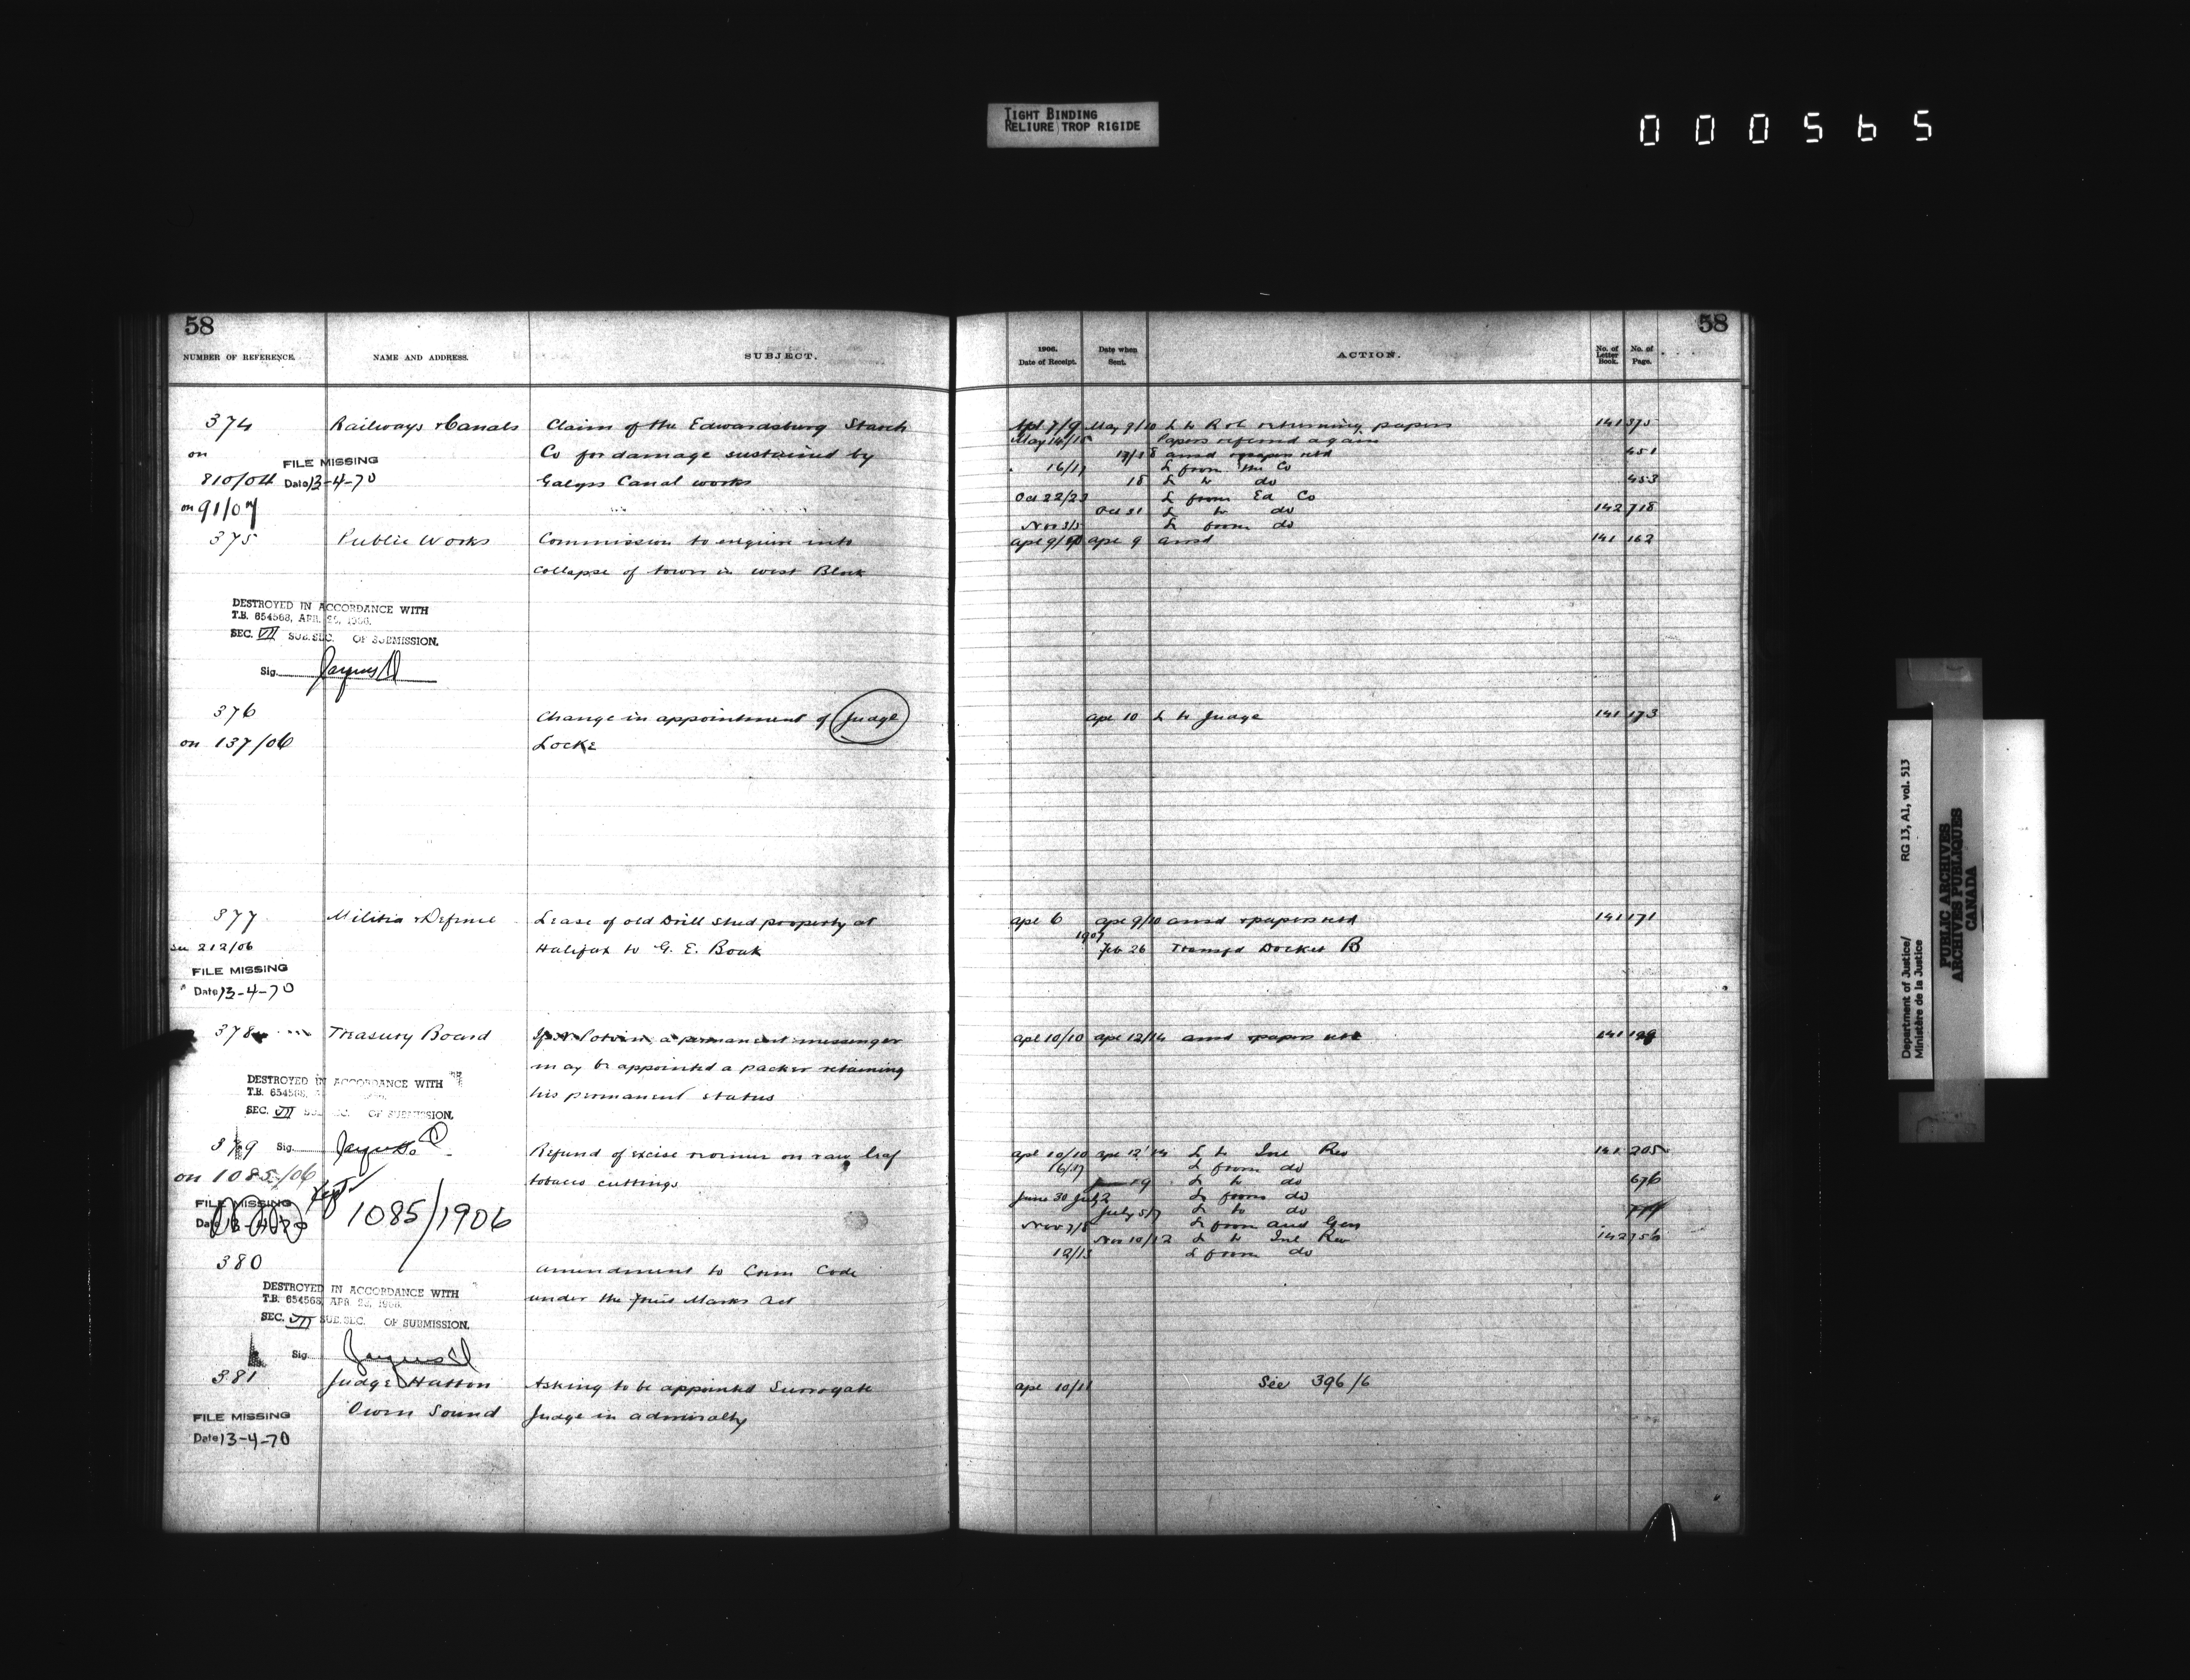 TIGHT BINDING
RELIURE TROP RIGIDE
000565
58
NUMBER OF REFERENCE. NAME AND ADDRESS. SUBJECT.
374 Railways & Canals Claim of the Edwardsburg Starch
on Co for damage sustained by
FILE MISSING
810/04 Date 13-4-70 Galops Canal works
on 91/07
375 Public Works Commission to enquire into
collapse of tower in West Block
DESTROYED IN ACCORDANCE WITH
T.B. 654568, APR. 25, 1966.
SEC. VII SUB.SEC. OF SUBMISSION.
Sig.
376 Change in appointment of Judge
on 137/06 Locke
377 Militia & Defence Lease of old Drill Shed property at
see 212/06 Halifax to G. E. Boak
FILE MISSING
Date 13-4-70
378 Treasury Board If Potvin, a permanent messenger
may be appointed a packer retaining
DESTROYED IN ACCORDANCE WITH
T.B. 654568,
his permanent status
SEC. VII OF SUBMISSION.
379 Sig. Refund of excise on raw leaf
on 1085/06 tobacco cuttings
FILE MISSING
Date 13-4-70 1085/1906
380 Amendment to Crim Code
DESTROYED IN ACCORDANCE WITH
T.B. 654568, APR. 25, 1966.
under the Fruit Marks Act
SEC. VII SUB.SEC. OF SUBMISSION.
Sig.
381 Judge Hatton Asking to be appointed Surrogate
Owen Sound Judge in admiralty
FILE MISSING
Date 13-4-70
58
1906.
Date of Receipt. Date when Sent. ACTION. No. of Letter Book. No. of Page.
Apl 7/9 May 9/10 L to R & C returning papers 141 375
May 14/15 Papers referred again
17/18 ansd & papers retd 451
16/17 L from the Co
18 L to do 453
Oct 22/23 L from Ed Co
Oct 31 L to do 142 718
Nov 3/5 L from do
apl 9/10 apl 9 ansd 141 162
apl 10 L to Judge 141 173
apl 6 apl 9/10 ansd & papers retd 141 171
1907
Feb 26 Transfd Docket B
apl 10/10 apl 12/14 ansd & papers retd 141
apl 10/10 apl 12/14 L to Inl Rev 141 205
16/17 L from do
June 19 L to do 676
June 30 July 2 L from do
July 5/7 L to do
Nov 7/8 L from Aud Gen
Nov 10/12 L to Inl Rev 142 756
12/13 L from do
apl 10/11 See 396/6
Department of Justice/ RG 13, A1, vol. 513
Ministère de la Justice
PUBLIC ARCHIVES
ARCHIVES PUBLIQUES
CANADA